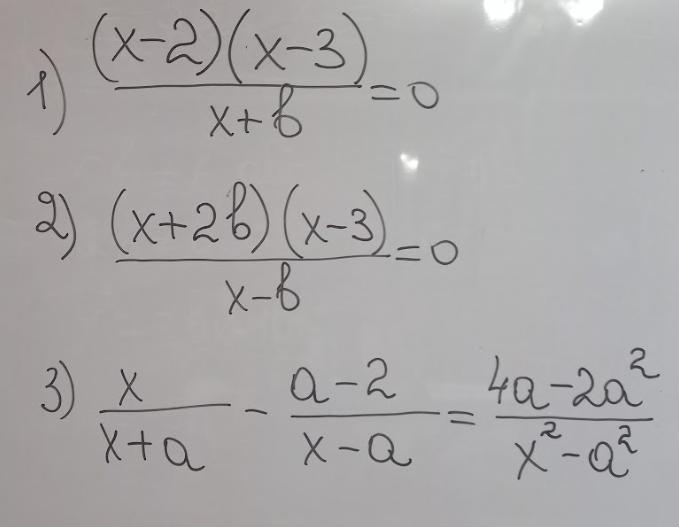 1) (x-2)(x-3)/(x+b) = 0
2) (x+2b)(x-3)/(x-b) = 0
3) x/(x+a) - (a-2)/(x-a) = (4a-2a²)/(x²-a²)